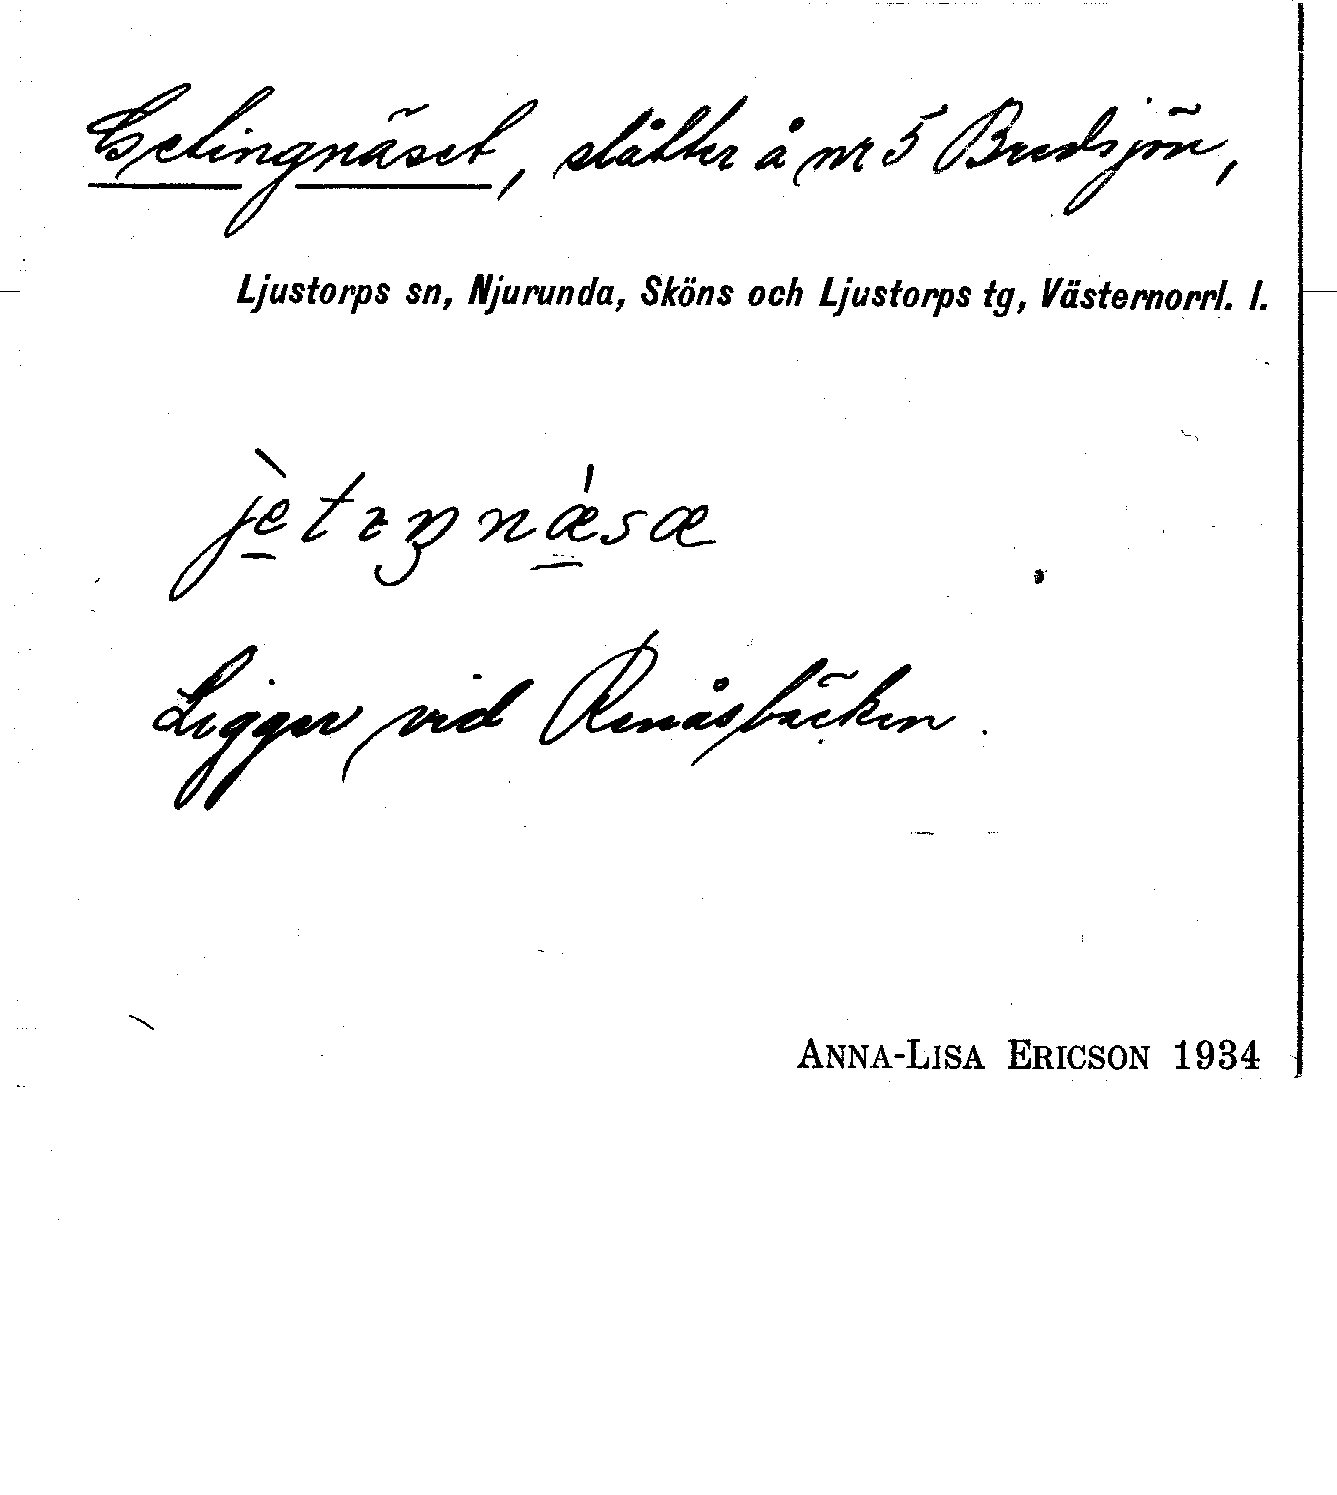 Getingnäset, slåtter å nr 5 Bredsjön,
Ljustorps sn, Njurunda, Sköns och Ljustorps tg, Västernorrl. l.
jètıŋnǽsæ
Ligger vid Renåsbäcken.
ANNA-LISA ERICSON 1934